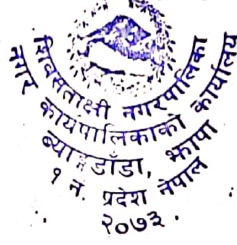 शिवसताक्षी नगरपालिका
नगर कार्यपालिकाको कार्यालय
झापा
१ नं. प्रदेश नेपाल
२०७३